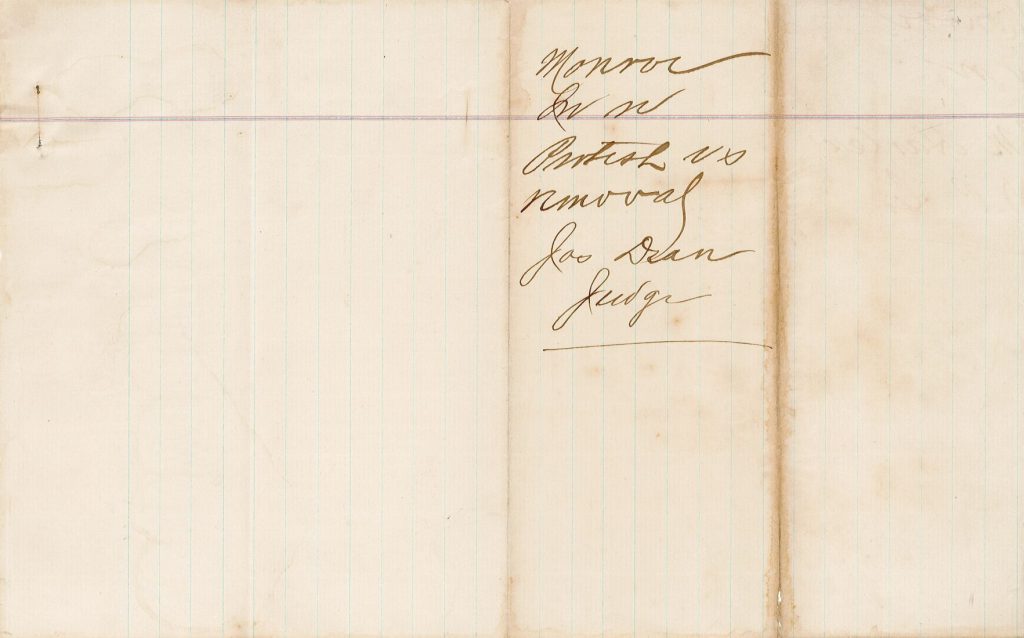 Monroe
In re
Protest vs
removal
Jas Dean
Judge